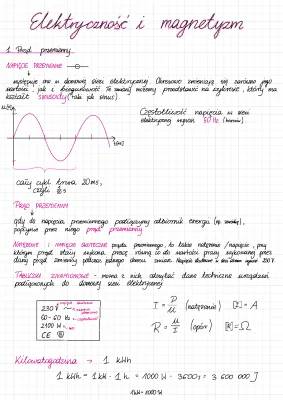 Elektryczność i magnetyzm
1. Prąd przemienny.
NAPIĘCIE PRZEMIENNE
występuje ono w domowej sieci elektrycznej. Okresowo zmieniają się zarówno jego
wartości, jak i biegunowość. Te zmiany możemy przedstawić na wykresie, który ma
kształt sinusoidy (taki jak sinus).
Częstotliwość napięcia w sieci
elektrycznej wynosi 50 Hz (herców).
t[s]
cały cykl trwa 20 ms,
czyli
PRĄD PRZEMIENNY
gdy do napięcia przemiennego podłączymy odbiornik energii (np. żarówkę),
popłynie przez niego prąd przemienny.
NATĘŻENIE i NAPIĘCIE SKUTECZNE prądu przemiennego, to takie natężenie / napięcie, przy
którym prąd stały wykona pracę równą co do wartości pracy wykonanej przez
dany prąd zmienny podczas jednego okresu zmian. Napięcie skuteczne w sieci domowej wynosi 230 V.
TABLICZKI ZNAMIONOWE - można z nich odczytać dane techniczne urządzeń
podłączonych do domowej sieci elektrycznej
230 V
50-60 Hz
2100 W
CE
I = P/U (natężenie) [I] = A
R = U/I (opór) [R] = Ω
Kilowatogodzina → 1 kWh
1 kWh = 1 kW · 1 h = 1000 W · 3600 s = 3 600 000 J
1kW = 1000 W